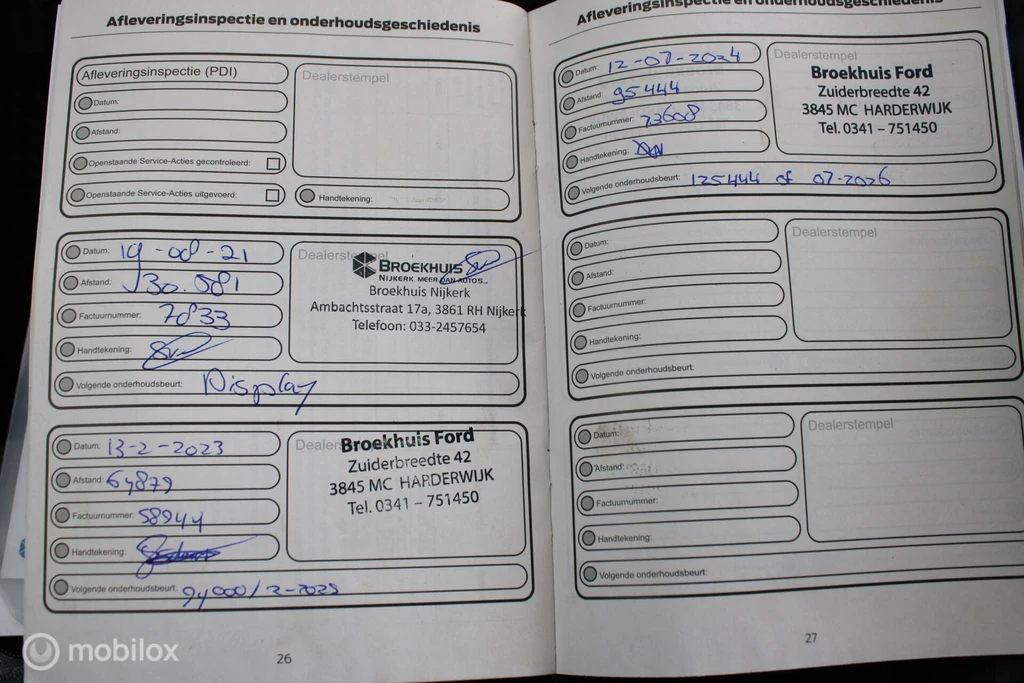 Afleveringsinspectie en onderhoudsgeschiedenis
Afleveringsinspectie (PDI)
Datum:
Afstand:
Openstaande Service-Acties gecontroleerd:
Openstaande Service-Acties uitgevoerd:
Dealerstempel
Handtekening:
Datum: 19-08-21
Afstand: 30.081
Factuurnummer: 7833
Handtekening:
Volgende onderhoudsbeurt: Display
Dealerstempel
BROEKHUIS
NIJKERK MEER DAN AUTO'S...
Broekhuis Nijkerk
Ambachtsstraat 17a, 3861 RH Nijkerk
Telefoon: 033-2457654
Datum: 13-2-2023
Afstand: 64879
Factuurnummer: 58944
Handtekening:
Volgende onderhoudsbeurt: 94000/2-2025
Dealer
Broekhuis Ford
Zuiderbreedte 42
3845 MC HARDERWIJK
Tel. 0341 – 751450
26
Afleveringsinspectie en onderhoudsgeschiedenis
Datum: 12-07-2024
Afstand: 95444
Factuurnummer: 73608
Handtekening:
Volgende onderhoudsbeurt: 125444 of 07-2026
Dealerstempel
Broekhuis Ford
Zuiderbreedte 42
3845 MC HARDERWIJK
Tel. 0341 – 751450
Datum:
Afstand:
Factuurnummer:
Handtekening:
Volgende onderhoudsbeurt:
Dealerstempel
Datum:
Afstand:
Factuurnummer:
Handtekening:
Volgende onderhoudsbeurt:
Dealerstempel
27
mobilox